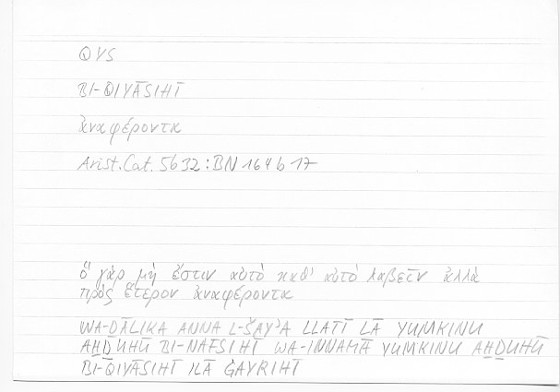 QYS
BI-QIYĀSIHĪ
ἀναφέροντα
Arist. Cat. 5b32 : BN 164b17
ὃ γὰρ μή ἐστιν αὐτὸ καθ' αὑτὸ λαβεῖν ἀλλὰ
πρὸς ἕτερον ἀναφέροντα
WA-ḎĀLIKA ANNA L-ŠAYʾA LLAḎĪ LĀ YUMKINU
AḪḎUHŪ BI-NAFSIHĪ WA-INNAMĀ YUMKINU AḪḎUHŪ
BI-QIYĀSIHĪ ILĀ ĠAYRIHĪ